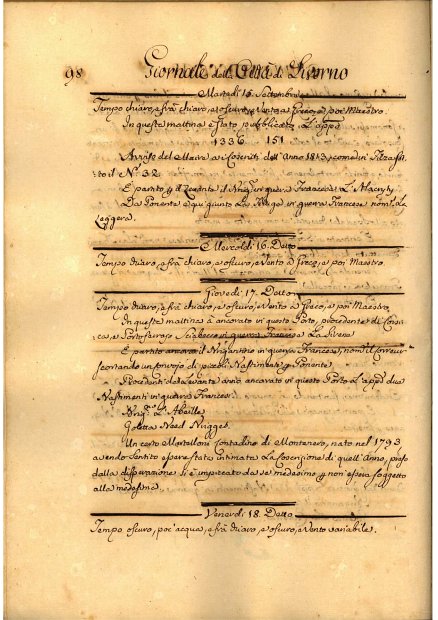 98 Giornale della Città di Livorno
Martedì 15. Settembre
Tempo chiaro, e frà chiaro, e oscuro, e Vento a Greco, e poi Maestro.
In questa mattina è stato pubblicato L'app.º
1336 151
Avviso del Maire a Coscritti dell'anno 1813, come in Filza sotto il Nº 32
È partito p. il Levante il Brig. in guerra Francese L'Alacryty
Da Ponente è qui giunto La in guerra Francese nom.
Leggera.
Mercoldì 16. Detto
Tempo chiaro, e frà chiaro, e oscuro, e Vento a Greco, e poi Maestro.
Giovedì 17. Detto
Tempo chiaro, e frà chiaro, e oscuro, e Vento a Greco, e poi Maestro
In questa mattina à ancorato in questo Porto, procedente di Corsica,
e Portoferrajo Sciabecco in guerra Francese La Sirena
È partito ancora il Brigantino in guerra Francese, nom.
scortando un convojo di piccoli Bastimenti p. Ponente.
Procedenti dal Levante anno ancorato in questo Porto L'app. due
Bastimenti in guerra Francesi
Brig. L'Abeille
Goletta Need Nugges.
Un certo Martelloni Contadino di Montenero, nato nel 1793
avendo sentito essere stata intimata La Coscrizione di quell'anno, preso
dalla disperazione si è impiccato da se medesimo p. non essere soggetto
alla medesima.
Venerdì 18. Detto
Tempo oscuro, poc'acqua, e frà chiaro, e oscuro, e Vento variabile.